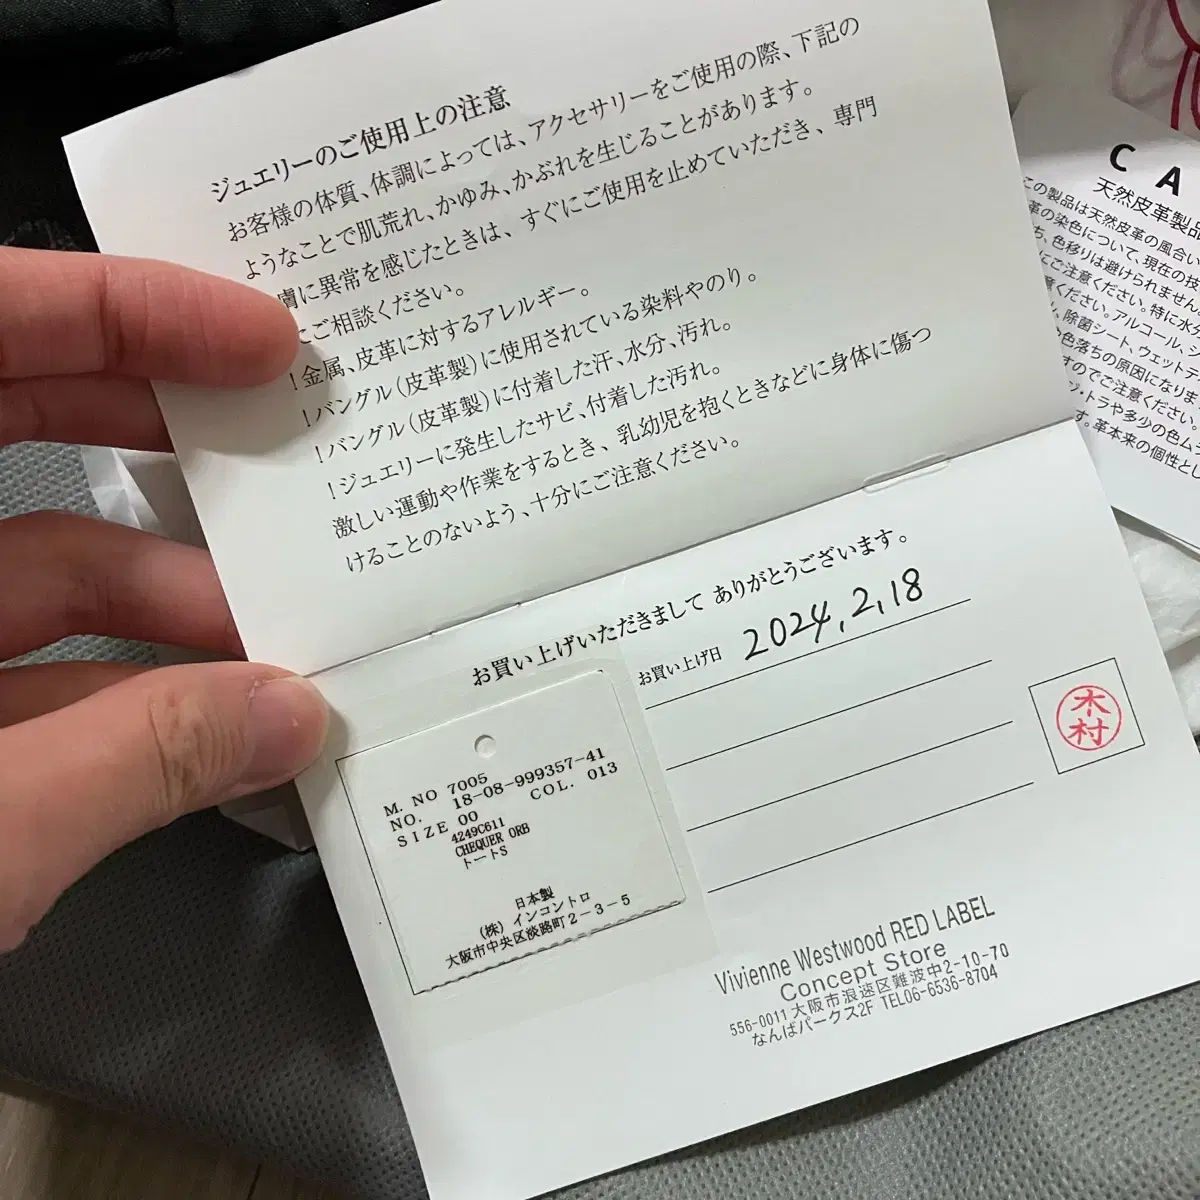 ジュエリーのご使用上の注意
お客様の体質、体調によっては、アクセサリーをご使用の際、下記の
ようなことで肌荒れ、かゆみ、かぶれを生じることがあります。
膚に異常を感じたときは、すぐにご使用を止めていただき、専門
にご相談ください。
!金属、皮革に対するアレルギー。
!バングル(皮革製)に使用されている染料やのり。
!バングル(皮革製)に付着した汗、水分、汚れ。
!ジュエリーに発生したサビ、付着した汚れ。
激しい運動や作業をするとき、乳幼児を抱くときなどに身体に傷つ
けることのないよう、十分にご注意ください。
お買い上げいただきまして ありがとうございます。
お買い上げ日 2024,2,18
木村
M. NO 7005
NO. 18-08-999357-41
SIZE 00 COL. 013
4249C611
CHEQUER ORB
トートS
日本製
(株) インコントロ
大阪市中央区淡路町2-3-5
Vivienne Westwood RED LABEL
Concept Store
556-0011 大阪市浪速区難波中2-10-70
なんばパークス2F TEL06-6536-8704
C A
天然皮革製品
この製品は天然皮革の風合い
革の染色について、現在の技
ち、色移りは避けられません
にご注意ください。特に水分
意ください。アルコール、シ
除菌シート、ウェットテ
色落ちの原因になりま
すのでご注意ください。
・トラや多少の色ム
す。革本来の個性とし